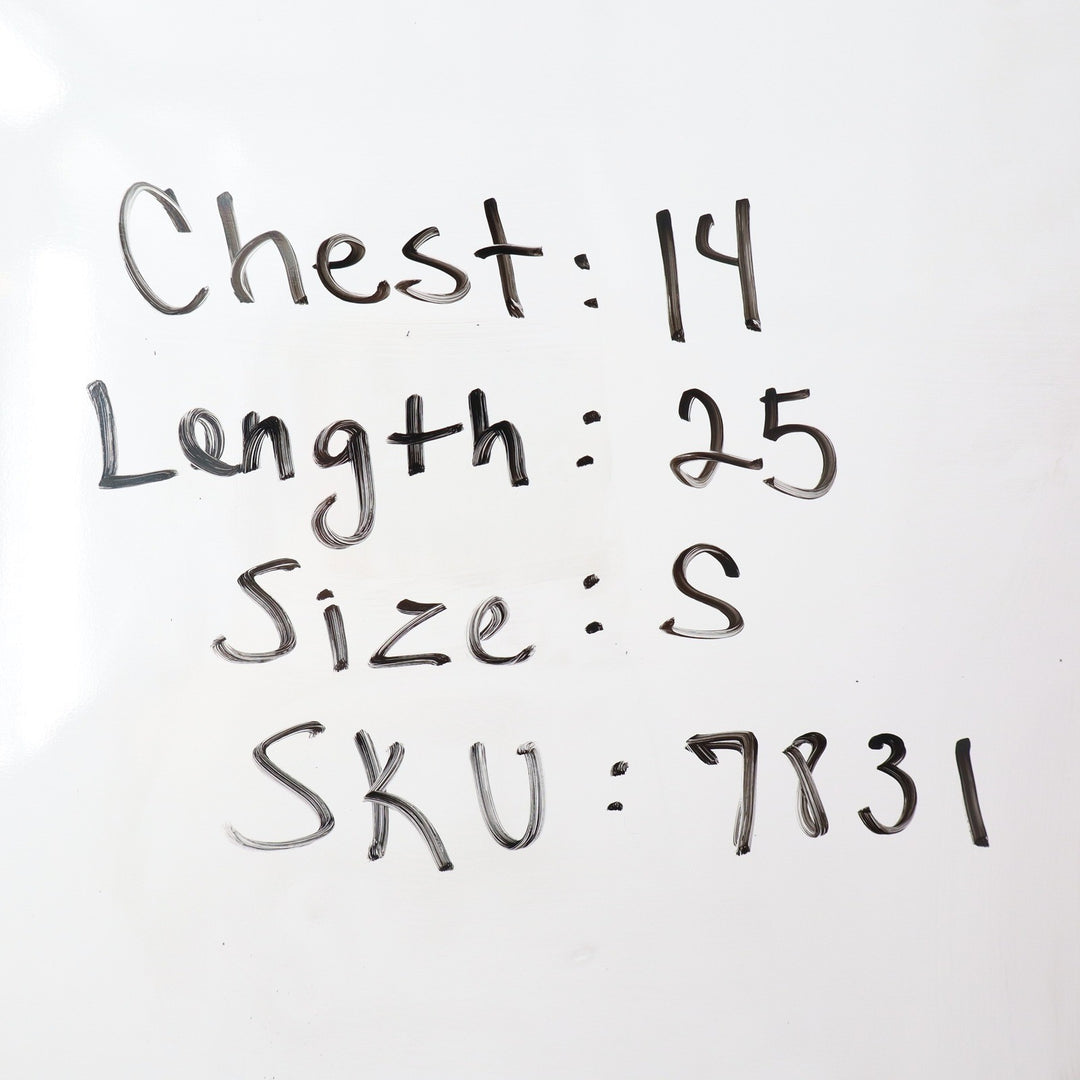 Chest: 14
Length: 25
Size: S
SKU: 7831